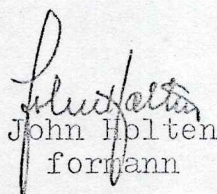 John Holten
John Holten
formann